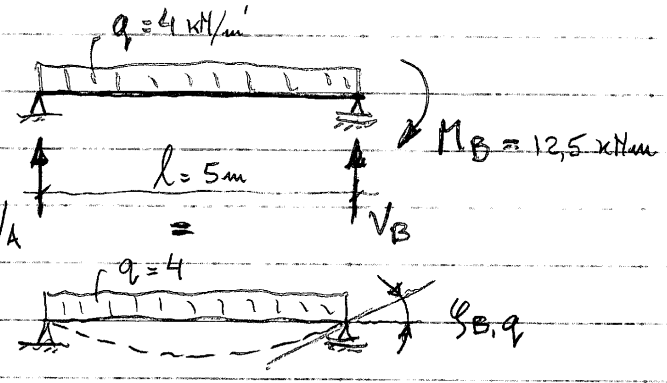 q = 4 kN/m'
M_B = 12,5 kNm
l = 5 m
V_A
V_B
=
q = 4
φ_B,q